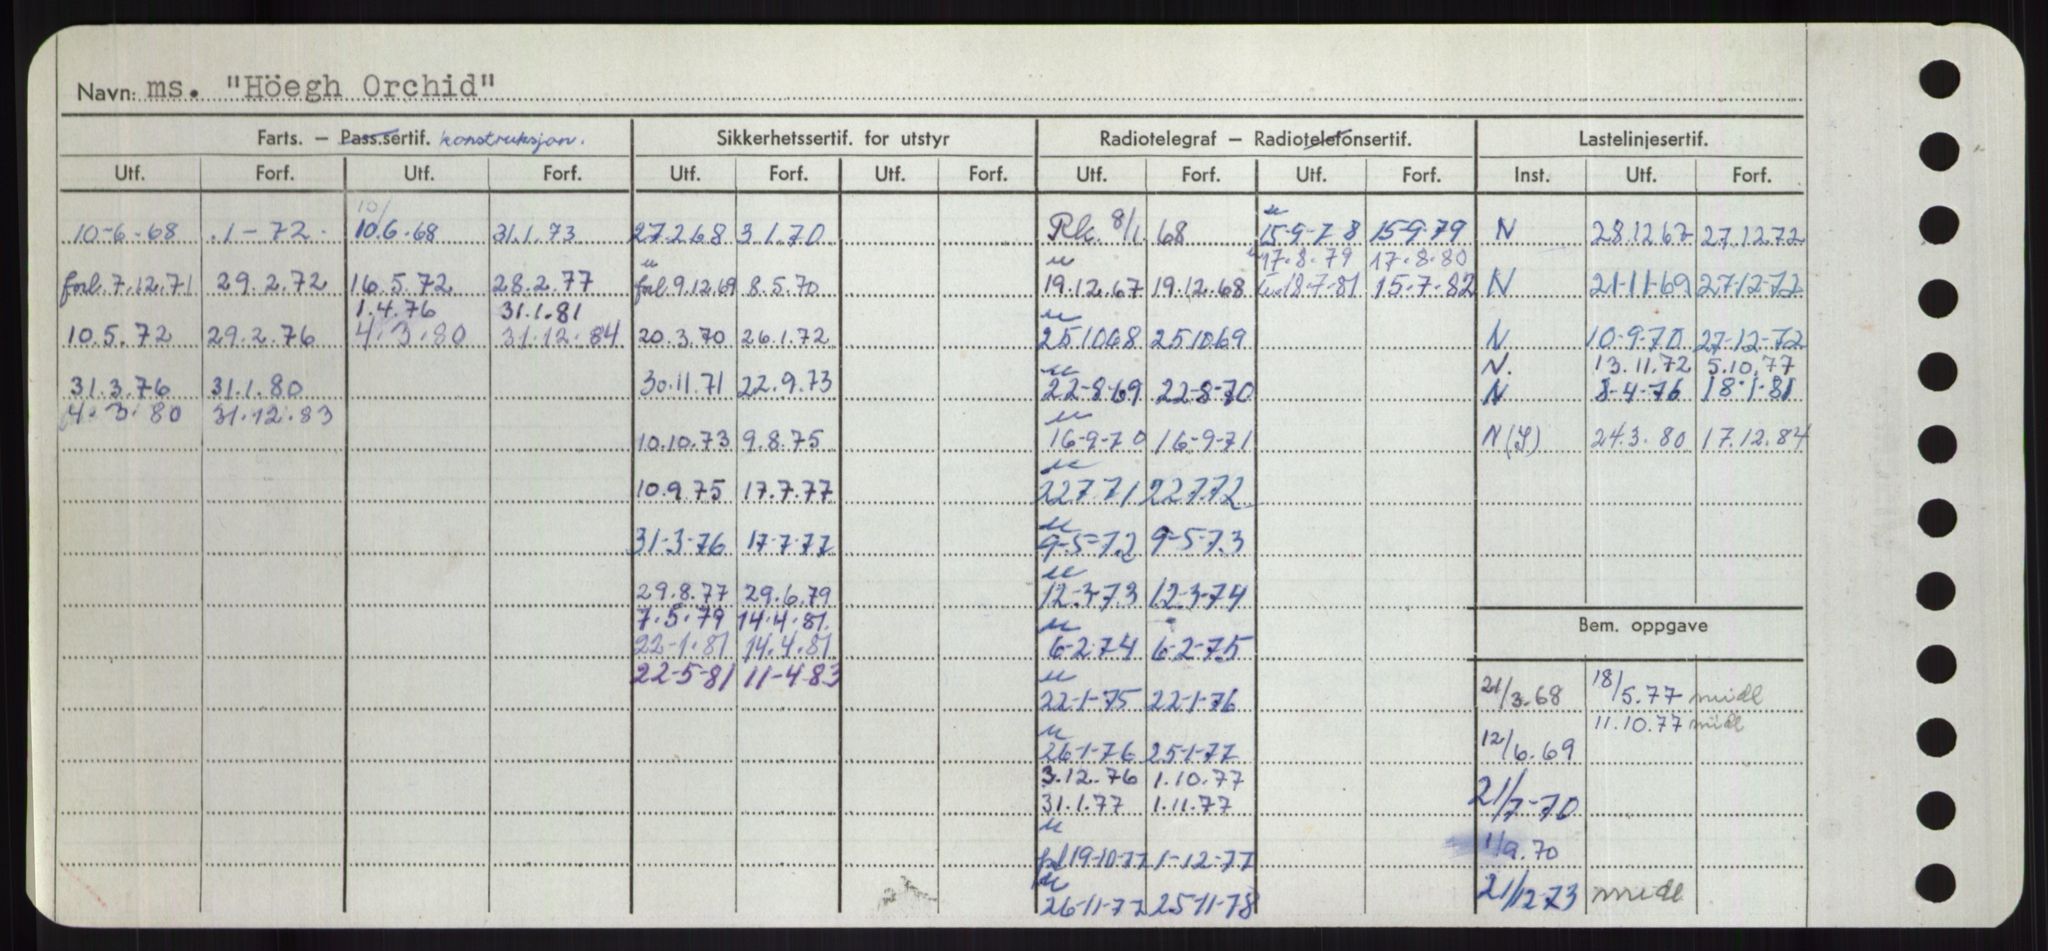 Navn: ms. "Höegh Orchid"
Farts. – Pass.sertif. konstruksjon. Sikkerhetssertif. for utstyr Radiotelegraf – Radiotelefonsertif. Lastelinjesertif.
Utf. Forf. Utf. Forf. Utf. Forf. Utf. Forf. Utf. Forf. Utf. Forf. Inst. Utf. Forf.
10/
10-6-68 .1-72. 10.6.68 31.1.73 27.2.68 3.1.70 Rk. 8/1 68 15-9-78 15-9-79 N 28.12.67 27.12.72
17.8.79 17.8.80
forl. 7.12.71 29.2.72 16.5.72 28.2.77 forl. 9.12.69 8.5.70 19.12.67 19.12.68 18-7-81 15.7.82 N 21-11-69 27-12-72
1.4.76 31.1.81
10.5.72 29.2.76 4.3.80 31.12.84 20.3.70 26.1.72 25.10.68 25.10.69 N 10-9-70 27-12-72
N. 13.11.72 5.10.77
31.3.76 31.1.80 30.11.71 22.9.73 22-8-69 22-8-70 N 8-4-76 18-1-81
4.3.80 31.12.83
10.10.73 9.8.75 16-9-70 16-9-71 N 24.3.80 17.12.84
10.9.75 17.7.77 22.7.71 22.7.72
31-3-76 17-7-77 9-5-72 9-5-73
29.8.77 29.6.79 12-3-73 12-3-74
7.5.79 14.4.81.
Bem. oppgave
22-1-81 14.4.81 6-2-74 6-2-75
22-5-81 11-4-83
22-1-75 22-1-76 21/3.68 18/5.77 midl
11.10.77 midl
26-1-76 25-1-77 12/6.69
3.12.76 1.10.77
31.1.77 1.11.77 21/7-70
19-10-77 1-12-77 1/9.70
26-11-77 25-11-78 21/12-73 midl